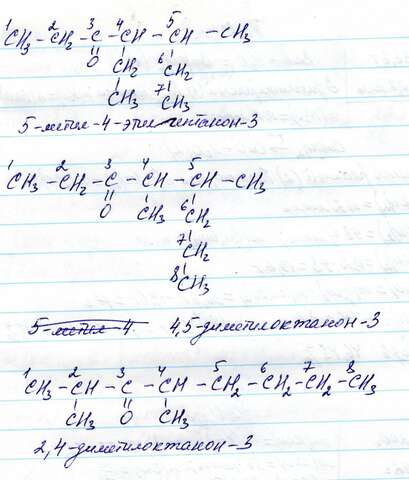 1 2 3 4 5
CH₃ – CH₂ – C – CH – CH – CH₃
O CH₂ 6 CH₂
CH₃ 7 CH₃
5-метил-4-этил гептанон-3
1 2 3 4 5
CH₃ – CH₂ – C – CH – CH – CH₃
O CH₃ 6 CH₂
7 CH₂
8 CH₃
5-метил-4 4,5-диметилоктанон-3
1 2 3 4 5 6 7 8
CH₃ – CH – C – CH – CH₂ – CH₂ – CH₂ – CH₃
CH₃ O CH₃
2,4-диметилоктанон-3